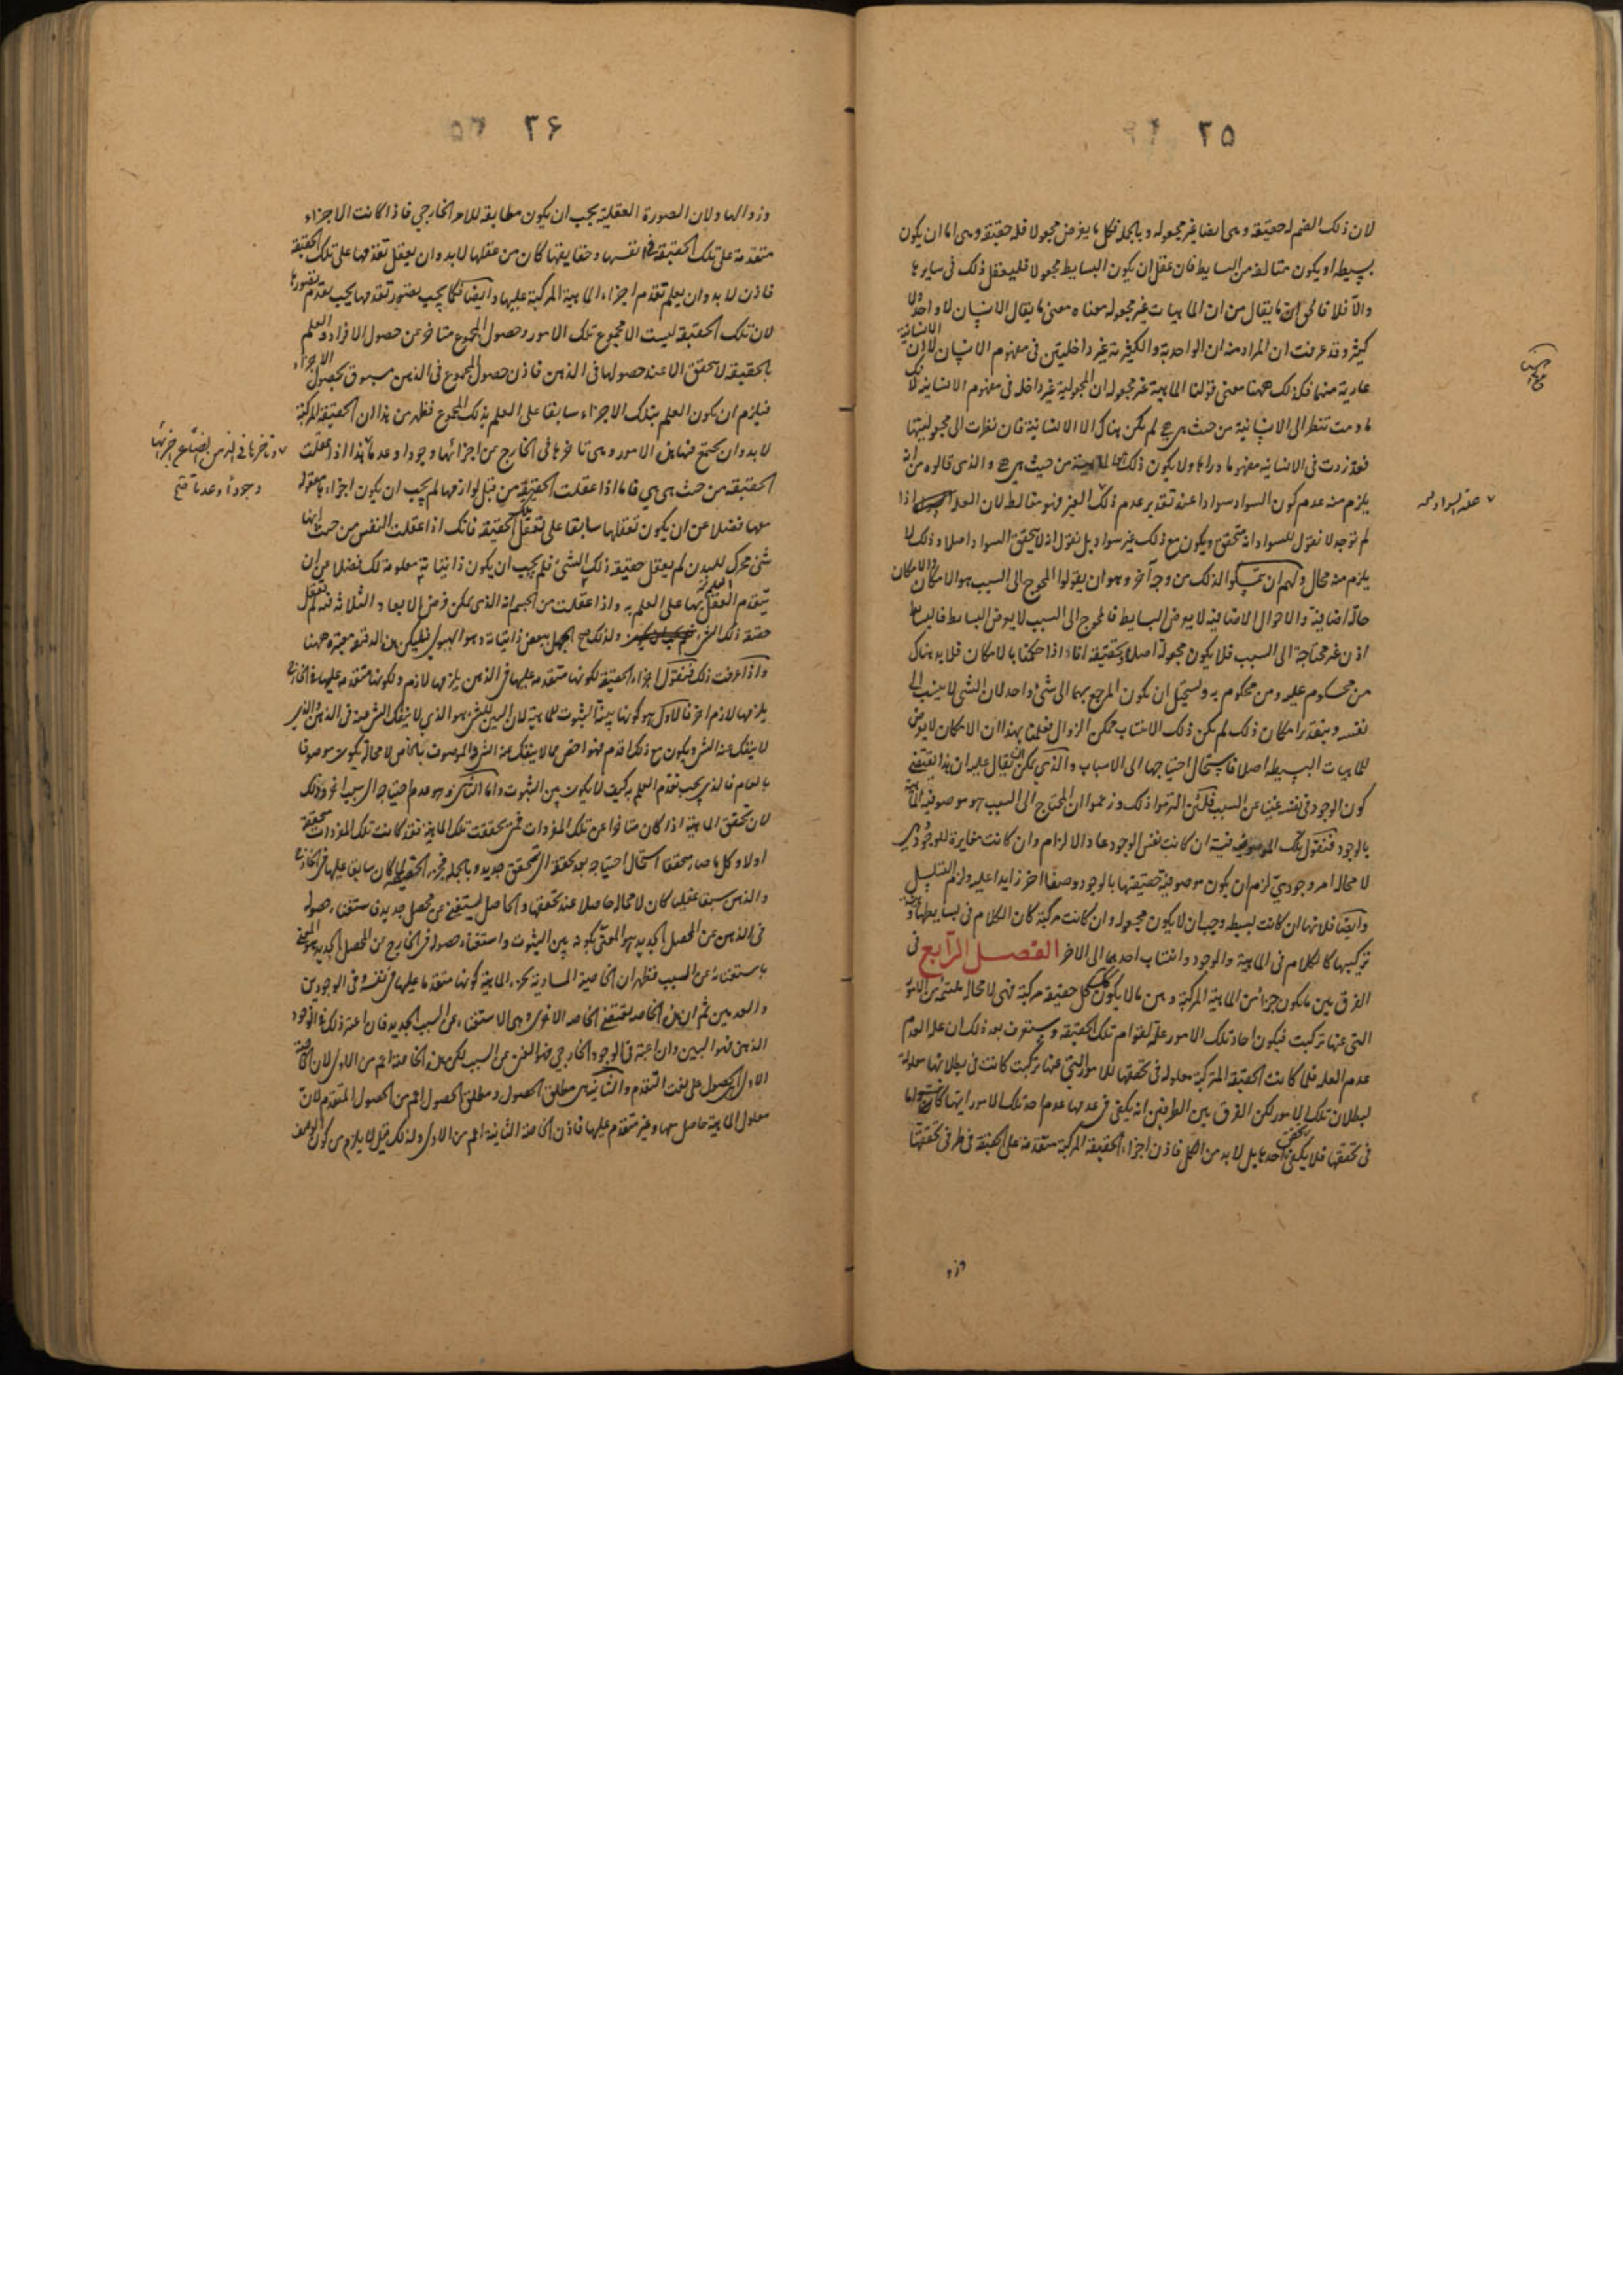 ٢٥
لان ذلك الضم له حقيقة وهى ايضا غير مجعوله وبالجمله فكل ما يفرض مجعولا فله حقيقة وهى اما ان يكون
بسيطه او يكون متالفه من البسايط فان عقل ان يكون البسايط مجعولا فليعقل ذلك فى سايرها
والا فلا فالحق ان ما يقال من ان الماهيات غير مجعوله معناه معنى ما يقال الانسان لا واحد ولا
كثير وقد عرفت ان المراد منه ان الواحدية والكثرية غير داخلتين فى مفهوم الانسان لا ان الانسانية
عارية منهما فكذلك ههنا معنى قولنا الماهية غير مجعوله ان المجعولية غير داخله فى مفهوم الانسانيه لانك
ما دمت تنظر الى الانسانية من حيث هى هى لم يكن هناك الا الانسانية فان نظرت الى مجعوليتها
فقد زدت فى الانسانيه مفهوما وراءها ولا يكون ذلك من حيث هى هى والذى قالوه من انه
يلزم منه عدم كون السواد سوادا عند تقدير عدم ذلك الغير فهو مغالطه لان العلة اذا
لم توجد لا نقول للسواد انه متحقق ويكون مع ذلك غير سواد بل نقول انه لا يتحقق السواد اصلا وذلك لا
يلزم منه محال ولهم ان يتمسكوا لذلك من وجه آخر وهو ان يقولوا المحوج الى السبب هو الامكان والامكان
حالة اضافية والاحوال الاضافية لا يعرض البسايط فالمحوج الى السبب لا يعرض البسايط فالبسايط
اذن غير محتاجة الى السبب فلا يكون مجعوله اصلا وتحقيقه انا اذا حكمنا بالامكان فلا بد هناك
من محكوم عليه ومن محكوم به ويستحيل ان يكون المرجع بهما الى شئ واحد لان الشئ لا ينسب الى
نفسه وبتقدير امكان ذلك لم يكن ذلك الانتساب ممكن الزوال فعلمنا بهذا ان الامكان لا يعرض
للماهيات البسيطه اصلا فاستحال احتياجها الى الاسباب والذى يمكن ان يقال عليه ان هذا يقتضى
كون الوجود فى نفسه غنيا عن السبب فلئن التزموا ذلك وزعموا ان المحتاج الى السبب هو موصوفية الماهية
بالوجود فنقول تلك الموصوفية ان كانت نفس الوجود عاد الالزام وان كانت مغايرة للوجود وهى
لا محاله امر وجودى لزم ان يكون موصوفية حقيقتها بالوجود وصفا اخر زايدا عليه ولزم التسلسل
وايضا فلانها ان كانت بسيطه وجب ان لا يكون مجعوله وان كانت مركبة كان الكلام فى بسايطها وفى
تركيبها كالكلام فى الماهية والوجود وانتساب احدهما الى الاخر الفصل الرابع فى
الفرق بين ما يكون جزأ من الماهية المركبة وبين ما لا يكون كل حقيقة مركبة فهى لا محاله ملتئمة من الامور
التى عنها تركبت فيكون احاد تلك الامور علة لقوام تلك الحقيقة وستعرف بعد ذلك ان علة العدم
عدم العلة فلما كانت الحقيقة المتركبة معلوله فى تحققها للامور التى عنها تركبت كانت فى بطلانها معلولة
لبطلان تلك الامور لكن الفرق بين الطرفين انه يكفى فى عدمها عدم احد تلك الامور ايها كان واما
فى تحققها فلا يكفى تحقق احدها بل لا بد من الكل فاذن اجزاء الحقيقة المركبة متقدمة على الحقيقة فى طرفى تحققها
وزو
٢٦
وزوالها ولان الصورة العقلية يجب ان يكون مطابقة للامر الخارجى فاذا كانت الاجزاء
متقدمة على تلك الحقيقة فى انفسها وحقايقها كان من عقلها لا بد وان يعقل تقدمها على تلك الحقيقة
فاذن لا بد وان يعلم تقدم اجزاء الماهية المركبة عليها وايضا فكما يجب تصور تقدمها يجب تقدم تصورها
لان تلك الحقيقة ليست الا مجموع تلك الامور وحصول المجموع متاخر عن حصول الافراد والعلم
بالحقيقه لا يتحقق الا عند حصولها فى الذهن فاذن حصول المجموع فى الذهن مسبوق بحصول الاجزاء
فيلزم ان يكون العلم بتلك الاجزاء سابقا على العلم بذلك المجموع فظهر من هذا ان الحقيقة المركبة
لا بد وان يجتمع فيها هذه الامور وهى تاخرها فى الخارج عن اجزائها وجودا وعدما هذا اذا عقلت
الحقيقه من حيث هى هى فاما اذا عقلت الحقيقة من قبل لوازمها لم يجب ان يكون اجزاءها معقولة
معها فضلا عن ان يكون تعقلها سابقا على تعقل تلك الحقيقة فانك اذا عقلت النفس من حيث انها
شئ محرك للبدن لم يعقل حقيقة ذلك الشئ فلم يجب ان يكون ذاتياته معلومة لك فضلا عن ان
يتقدم العلم بها على العلم به واذا عقلت من الجسم انه الذى يمكن فرض الابعاد الثلاثه فيه لم تعقل
حقيقة ذلك الشئ ولذلك صح الجهل ببعض ذاتياته وهو الهيولى فليكن هذه الدقيقة معتبرة ههنا
واذا عرفت ذلك فنقول اجزاء الحقيقة لكونها متقدمه عليها فى الذهن يلزمها لازم ولكونها متقدمه عليها فى الخارج
يلزمها لازم اخر فالاول هو كونها بينة الثبوت للماهية لان البين للشئ هو الذى لا ينفك الشئ عنه فى الذهن والذى
لا ينفك عنه الشئ ويكون مع ذلك اقدم فهو اخص مما لا ينفك عنه الشئ والموصوف بالخاص لا محالة يكون موصوفا
بالعام فالذى يجب تقدم العلم به كيف لا يكون بين الثبوت واما الثانى وهو عدم احتياجه الى سبب اخر وذلك
لان تحقق الماهية اذا كان متاخرا عن تلك المفردات فمتى تحققت تلك الماهية فقد كانت تلك المفردات متحققة
اولا وكل ما صار متحققا استحال احتياجه بعد تحققه الى تحقق جديد وبالجمله فجزء الحقيقة لما كان سابقا عليها فى الخارج
والذهن سبقا عقليا كان لا محالة حاصلا عند تحققها والحاصل يستغنى عن محصل جديد فاستغناء حصوله
فى الذهن عن المحصل الجديد هو المعنى بكونه بين الثبوت واستغناء حصوله فى الخارج عن المحصل الجديد هو المعنى
باستغنائه عن السبب فظهر ان الخاصية المساوية لجزء الماهية كونها متقدما عليها فى نفسه وفى الوجودين
والعدمين ثم ان هذه الخاصه تقتضى الخاصه الاخرى وهى الاستغناء عن السبب الجديد فان اعتبر ذلك فى الوجود
الذهنى فهو البين وان اعتبر فى الوجود الخارجى فهو الغنى عن السبب لكن هذه الخاصة اعم من الاولى لان الخاصة
الاولى الحصول على نعت التقدم والثانية هى مطلق الحصول ومطلق الحصول اعم من الحصول المتقدم لان
معلول الماهية حاصل معها وغير متقدم عليها فاذن الخاصة الثانية اعم من الاولى ولذلك قيل لا يلزم من كون الوصف
وتاخرها فى الذهن ايضا عن اجزائها
وجودا وعدما صح